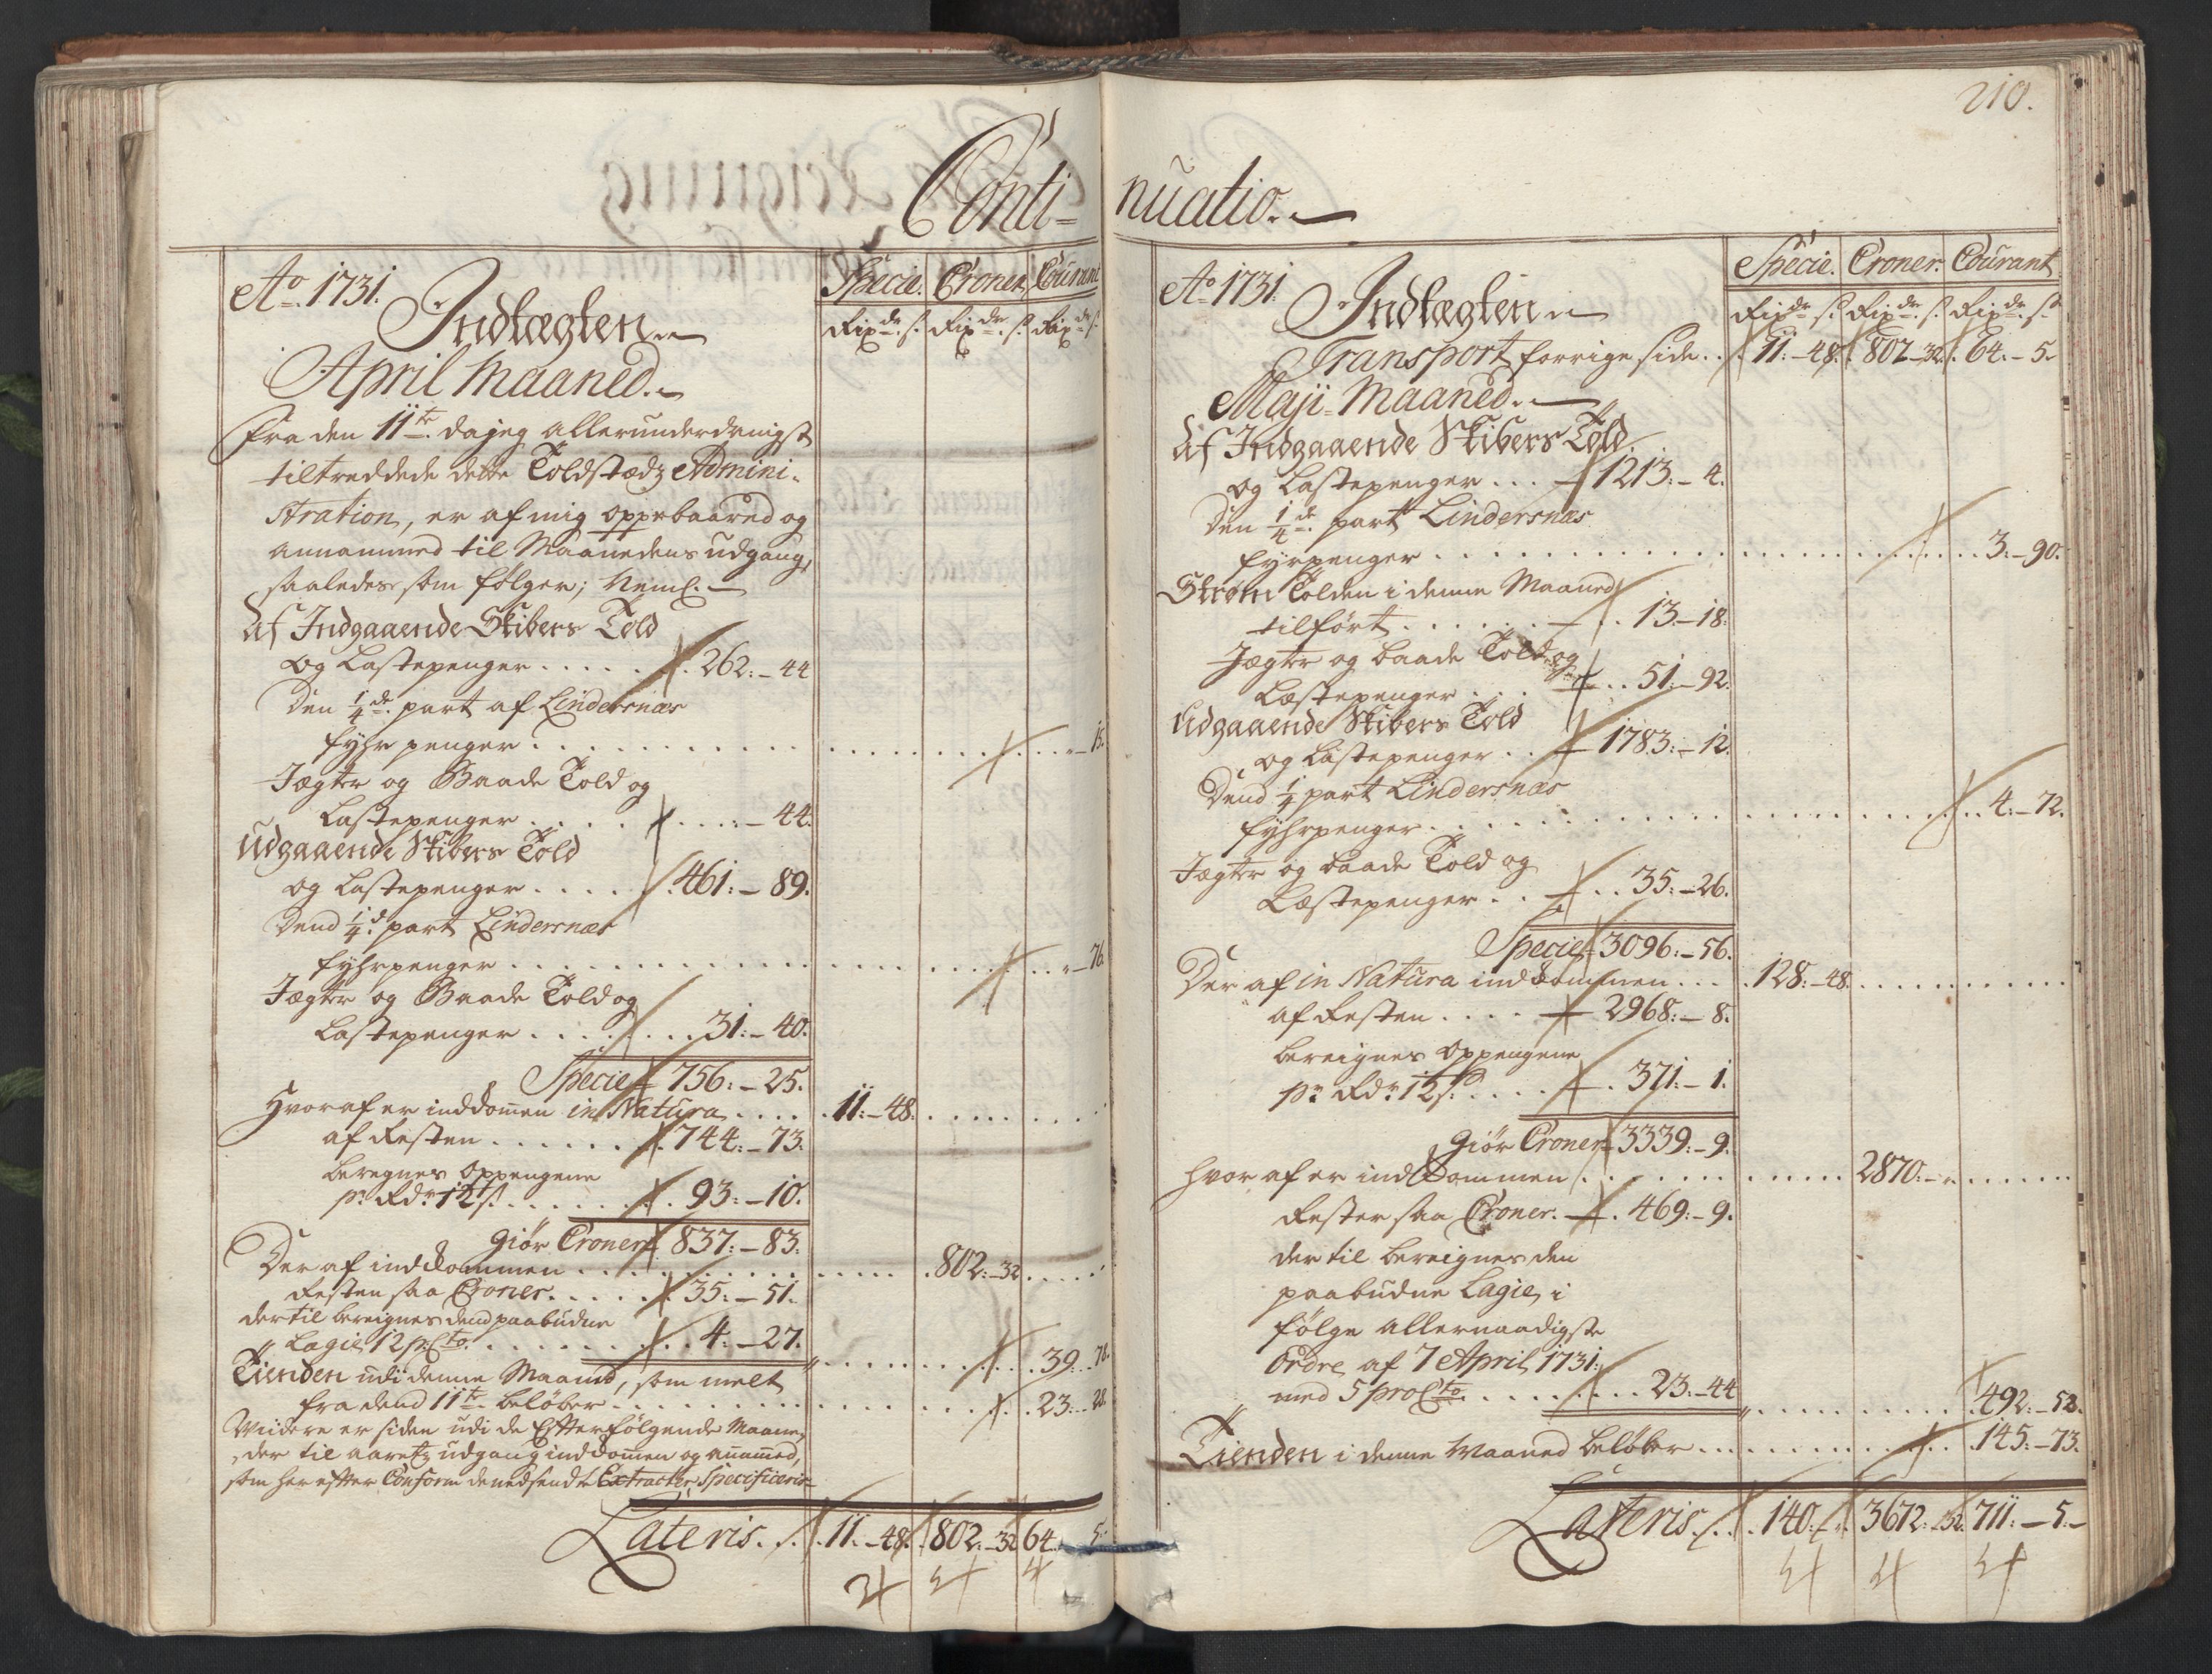 210.
Conti= nuatio.
Ao. 1731.
Specie. Croner. Courant
Indtægten
Rixdr. s. Rixdr. s. Rixdr. s.
April Maaned.
Fra den 11te. da jeg allerunderdanigst
tiltreddede dette Toldstædz Admini-
stration, er af mig oppebaared og
annammed til Maanedens udgang,
saaledes som følger; Neml.
Af Indgaaende Skibers Told
og Lastepenger . . . . . 262.-44
Den 1/4de. part af Lindersnæs
fyhr penger . . . . . -15.
Jægter og Baade Told og
Lastepenger . . . . . -44.
Udgaaende Skibers Told
og Lastepenger . . . . . 461.-89.
Dend 1/4d. part Lindersnæs
fyhrpenger . . . . . -76.
Jægter og Baade Told og
Lastepenger . . . . . 31.-40.
Specie 756.-25.
Hvoraf er indkomen in Natura . . . . 11.-48.
af Resten . . . . . 744.-73.
beregnes Oppengene
pr. Rdr. 12 s. . . . . . 93.-10.
giør Croner 837.-83.
Der af indkommen . . . . . 802.-32
Resten saa Croner . . . . . 35.-51.
dertil bereignes dend paabudne
Lagie 12 pCto. . . . . . 4.-27.
. . . . . 39.-78.
Tienden udi denne Maaned, som melt
fra dend 11te. beløber . . . . . 23.-28.
Viidere er siden udi de Efterfølgende Maane,
der til aaretz udgang indkomen og anammed,
som her effter Conform de nedsendte Extracter Specificeris
Lateris. 11.-48. 802.-32 64.-5.
Ao. 1731.
Specie. Croner. Courant
Indtægten
Rixdr. s. Rixdr. s. Rixdr. s.
Transport forrige side . . 11.-48. 802.-32. 64.-5.
Maji Maaned.
Af Indgaaende Skibers Told
og Lastepenger . . . 1213.-4.
Den 1/4de. part Lindersnæs
fyrpenger . . . . . 3.-90.
Strøm Tolden i denne Maaned
tilført . . . . . 13.-18.
Jægter og baade Told og
Læstepenger . . . 51.-92.
Udgaaende Skibers Told
og Lastepenger . . 1783.-12.
Dend 1/4 part Lindersnæs
fyhrpenger . . . . . 4.-72.
Jægter og baade Told og
Læstepenger . . . 35.-26.
Specie 3096.-56.
Der af in Natura indkommen . . . 128.-48.
af Resten . . . . 2968.-8.
bereignes Oppengene
pr. Rdr. 12 s. . . . . 371.-1.
giør Croner 3339.-9.
hvor af er indkommen . . . . . 2870.-
Rester saa Croner. 469.-9.
der til bereignes den
paabudne Lagie, i
følge allernaadigste
Ordre af 7 April 1731.
med 5 proCto. . . . . . 23.-44
. . . . . 492.-53.
Tienden i denne Maaned beløber . . . . . 145.-73.
Lateris. 140.- 3672.-32. 711.-5.